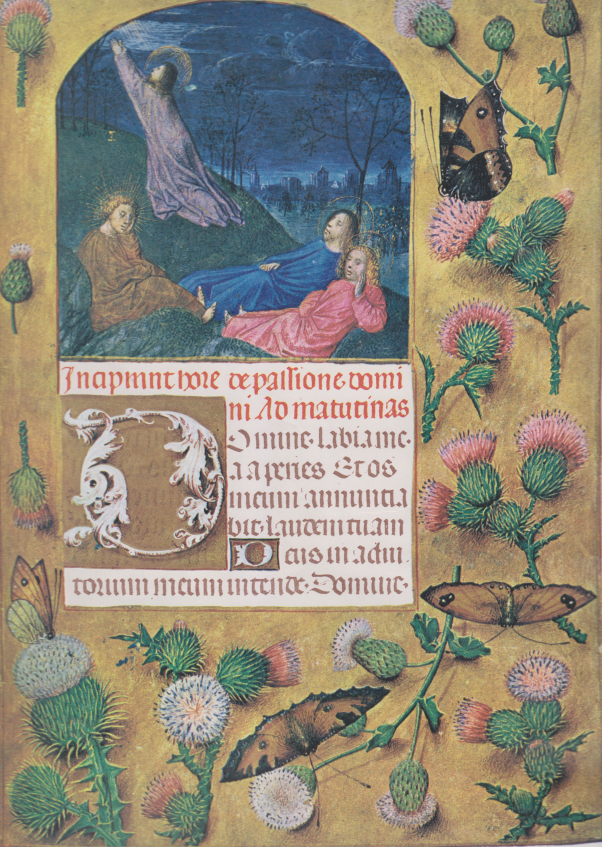 Incipiunt hore de passione domi
ni Ad matutinas
Domine labia me
a aperies Et os
meum annuntia
bit laudem tuam
Deus in adiu
torium meum intende Domine